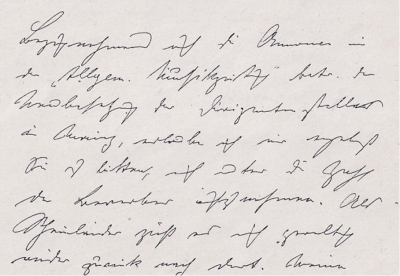 Bezugnehmend auf die Annonce in
der "Allgem. Musikzeitg" betr. der
Neubesetzung der Dirigentenstelle
in , erlaube ich mir ergebenst
Sie zu bitten, mich unter die Zahl
der Bewerber aufzunehmen. Als
Rheinländer zieht es mich gewaltig
wieder zurück nach dort. Meine